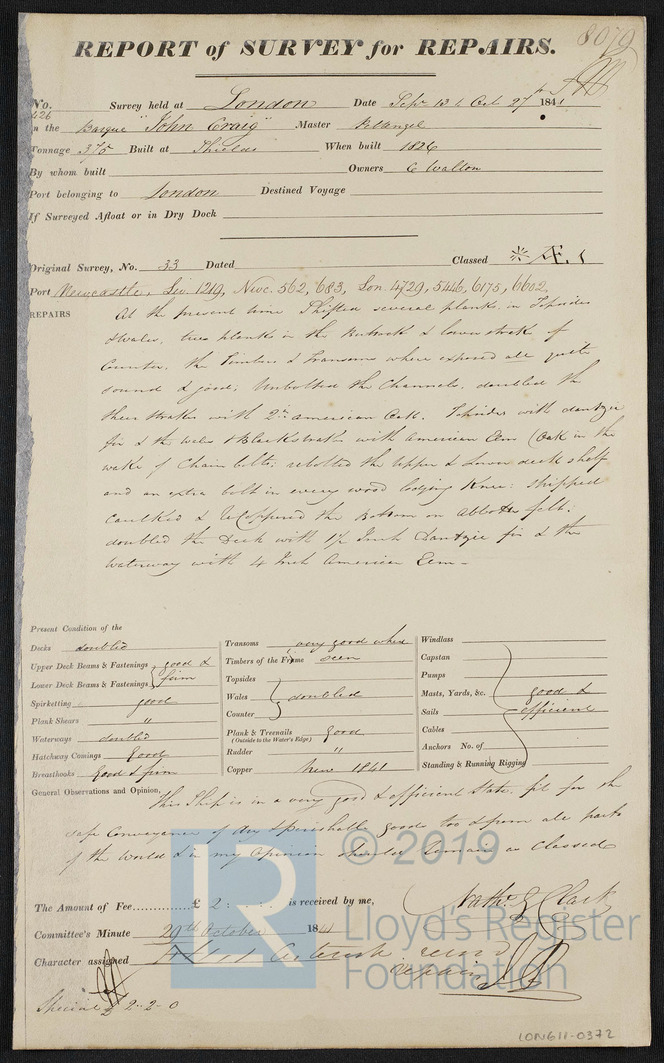 8079
REPORT of SURVEY for REPAIRS.
No. Survey held at London Date Sepr 13 to Oct 27th 1841
426
on the Barque "John Craig" Master
Tonnage 375 Built at Shields When built 1826
By whom built Owners C Walton
Port belonging to London Destined Voyage
If Surveyed Afloat or in Dry Dock
Original Survey, No. 33 Dated Classed Æ. 1
Port Newcastle, Liv 1219, Newc. 562, 683, Lon 4729, 5446, 6175, 6602
REPAIRS At the present time Shifted several planks in Topsides
Wales, two planks in the Buttock & lower strake of
Counter. the Timbers & Transoms where exposed all quite
sound & good; Unbolted the Channels, doubled the
Sheer Strakes with 2 in American Oak. Topsides with dantzic
fir & the wales & Blackstrake with American Elm (Oak in the
wake of Chain bolts: rebolted the Upper & Lower deck shelf
and an extra bolt in every wood lodging Knee: Stripped
Caulked & ReCoppered the Bottom on Abbotts felt:
doubled the Deck with 1½ Inch Dantzic fir & the
Waterway with 4 Inch American Elm -
Present Condition of the
Decks doubled
Upper Deck Beams & Fastenings good &
Lower Deck Beams & Fastenings firm
Spirketting good
Plank Shears "
Waterways doubled
Hatchway Comings Good
Breasthooks Good & firm
Transoms very good where
Timbers of the Frame seen
Topsides
Wales doubled
Counter
Plank & Treenails Good
(Outside to the Water's Edge)
Rudder "
Copper New 1841
Windlass
Capstan
Pumps
Masts, Yards, &c. good &
Sails efficient
Cables
Anchors No. of
Standing & Running Rigging
General Observations and Opinion, This Ship is in a very good & efficient State. fit for the
safe Conveyance of dry & perishable goods to & from all parts
of the World & in my Opinion should remain as Classed
© 2019
The Amount of Fee £ 2 : is received by me,
Nathl G Clark
Committee's Minute 29th October 1841
Character assigned
Special £ 2-2-0
LR
Lloyd's Register
Foundation
LON611-0372